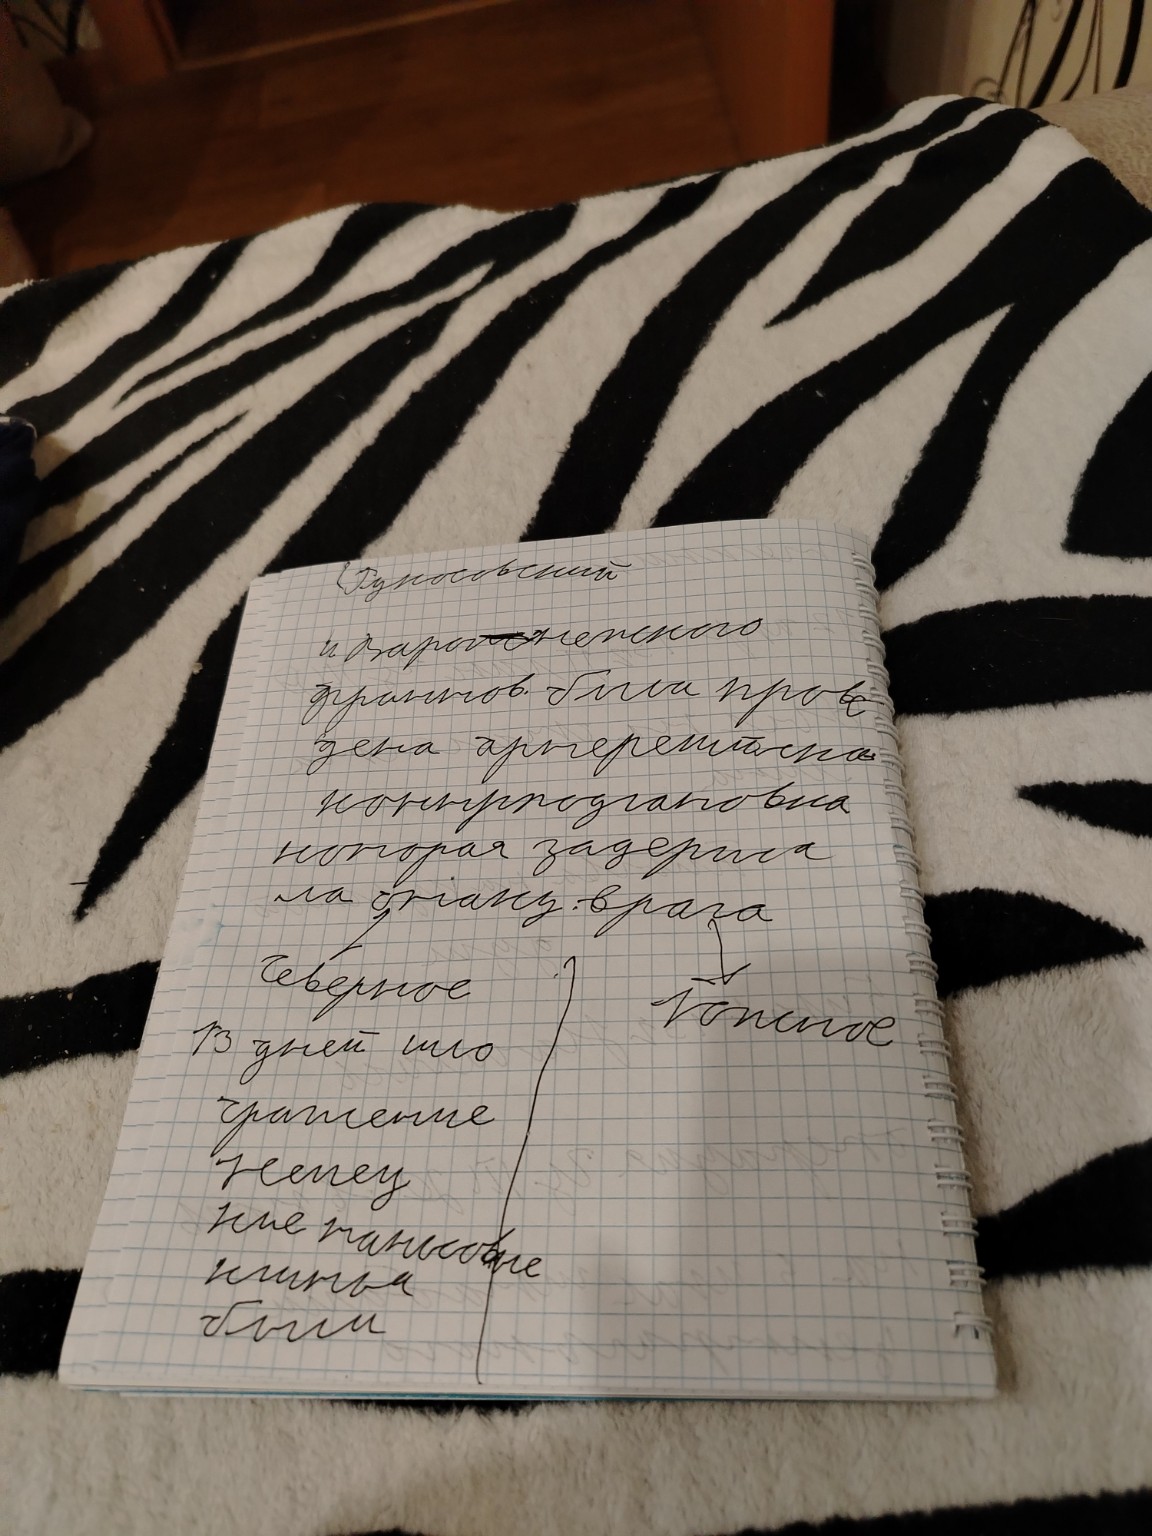 (Рукосовский
и Варонежского
франтов. была прове
дена артерештска
контрподгановка
которая задержа
ла атаку. врага
Северное
Южное
13 дней шло
сражение
Немец
кие танковые
клинья
были